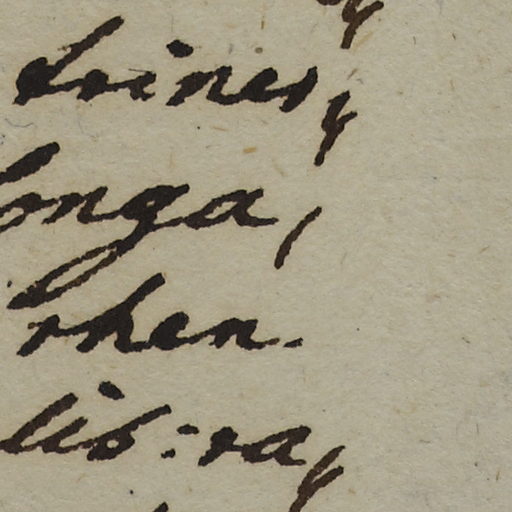 trines,
longa,
rhen.
lib: ra,